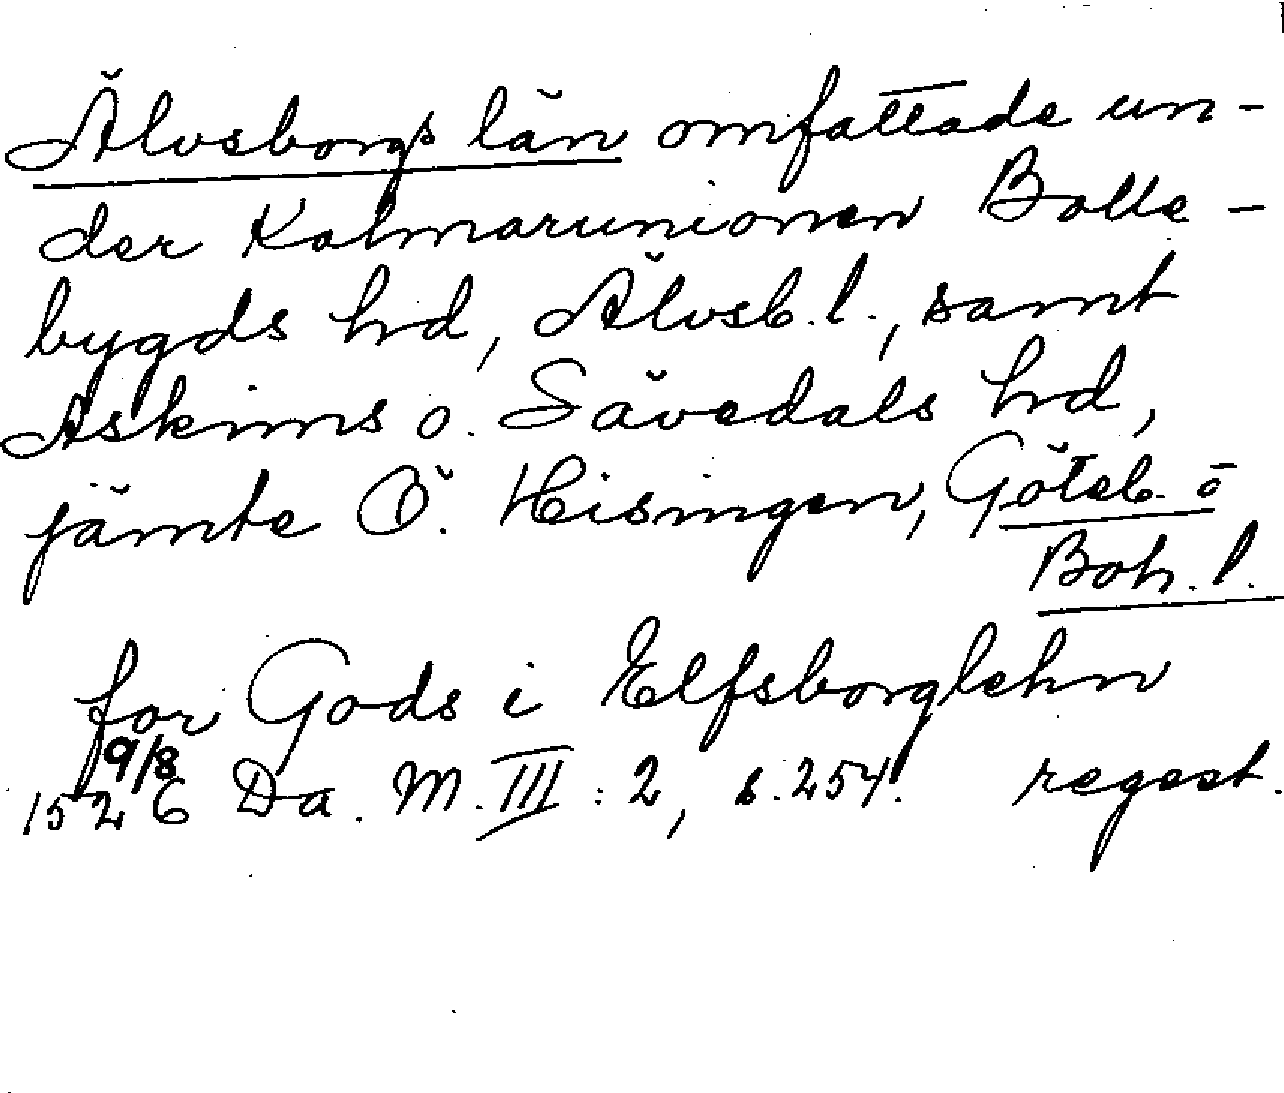 Älvsborgs län omfattade un-
der Kalmarunionen Bolle-
bygds hrd, Älvsb. l., samt
Askims o. Sävedals hrd,
jämte Ö. Hisingen, Göteb. o
Boh. l.
for Gods i Elfsborglehn
9/8
1526 Da. M. III : 2, s. 254. regest.